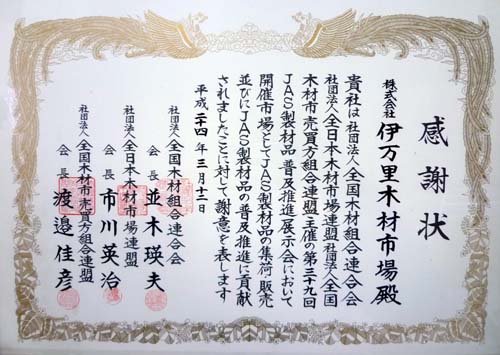 感謝状
株式会社 伊万里木材市場殿
貴社は社団法人全国木材組合連合会
社団法人全日本木材市場連盟社団法人全国
木材市売買方組合連盟主催の第三十九回
JAS製材品普及推進展示会において
開催市場としてJAS製材品の集荷・販売
並びにJAS製材品の普及推進に貢献
されましたことに対して謝意を表します
平成二十四年三月十二日
社団法人全国木材組合連合会
会長 並木瑛夫
社団法人全日本木材市場連盟
会長 市川英治
社団法人全国木材市売買方組合連盟
会長 渡邉佳彦